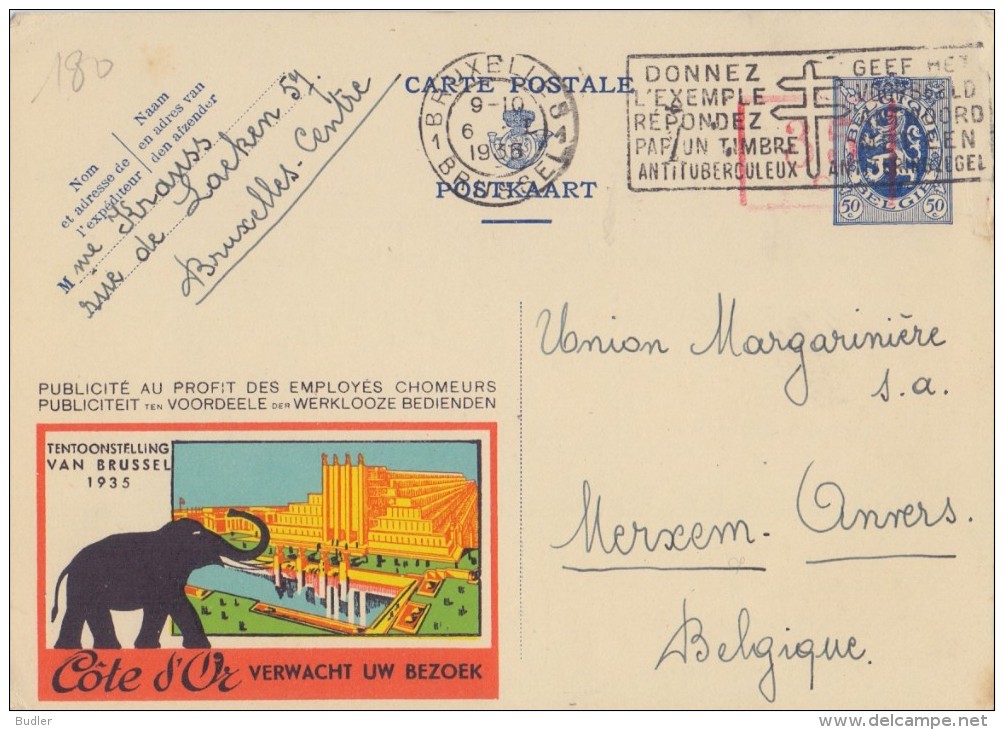 180
Nom
et adresse de
l'expéditeur
Naam
en adres van
den afzender
Mme Krauss
rue de Laeken 57.
Bruxelles-Centre
CARTE POSTALE
POSTKAART
BRUXELLES
9-10
6
1935
1 BRUSSEL 1
DONNEZ
L'EXEMPLE
RÉPONDEZ
PAR UN TIMBRE
ANTITUBERCULEUX
GEEF HET
VOORBEELD
BELGIQUE
BELGIË
50 c
50 c
Union Margarinière
s.a.
Merxem-Anvers.
Belgique.
PUBLICITÉ AU PROFIT DES EMPLOYÉS CHOMEURS
PUBLICITEIT TEN VOORDEELE DER WERKLOOZE BEDIENDEN
TENTOONSTELLING
VAN BRUSSEL
1935
Côte d'Or VERWACHT UW BEZOEK
Budler
delcampe.net